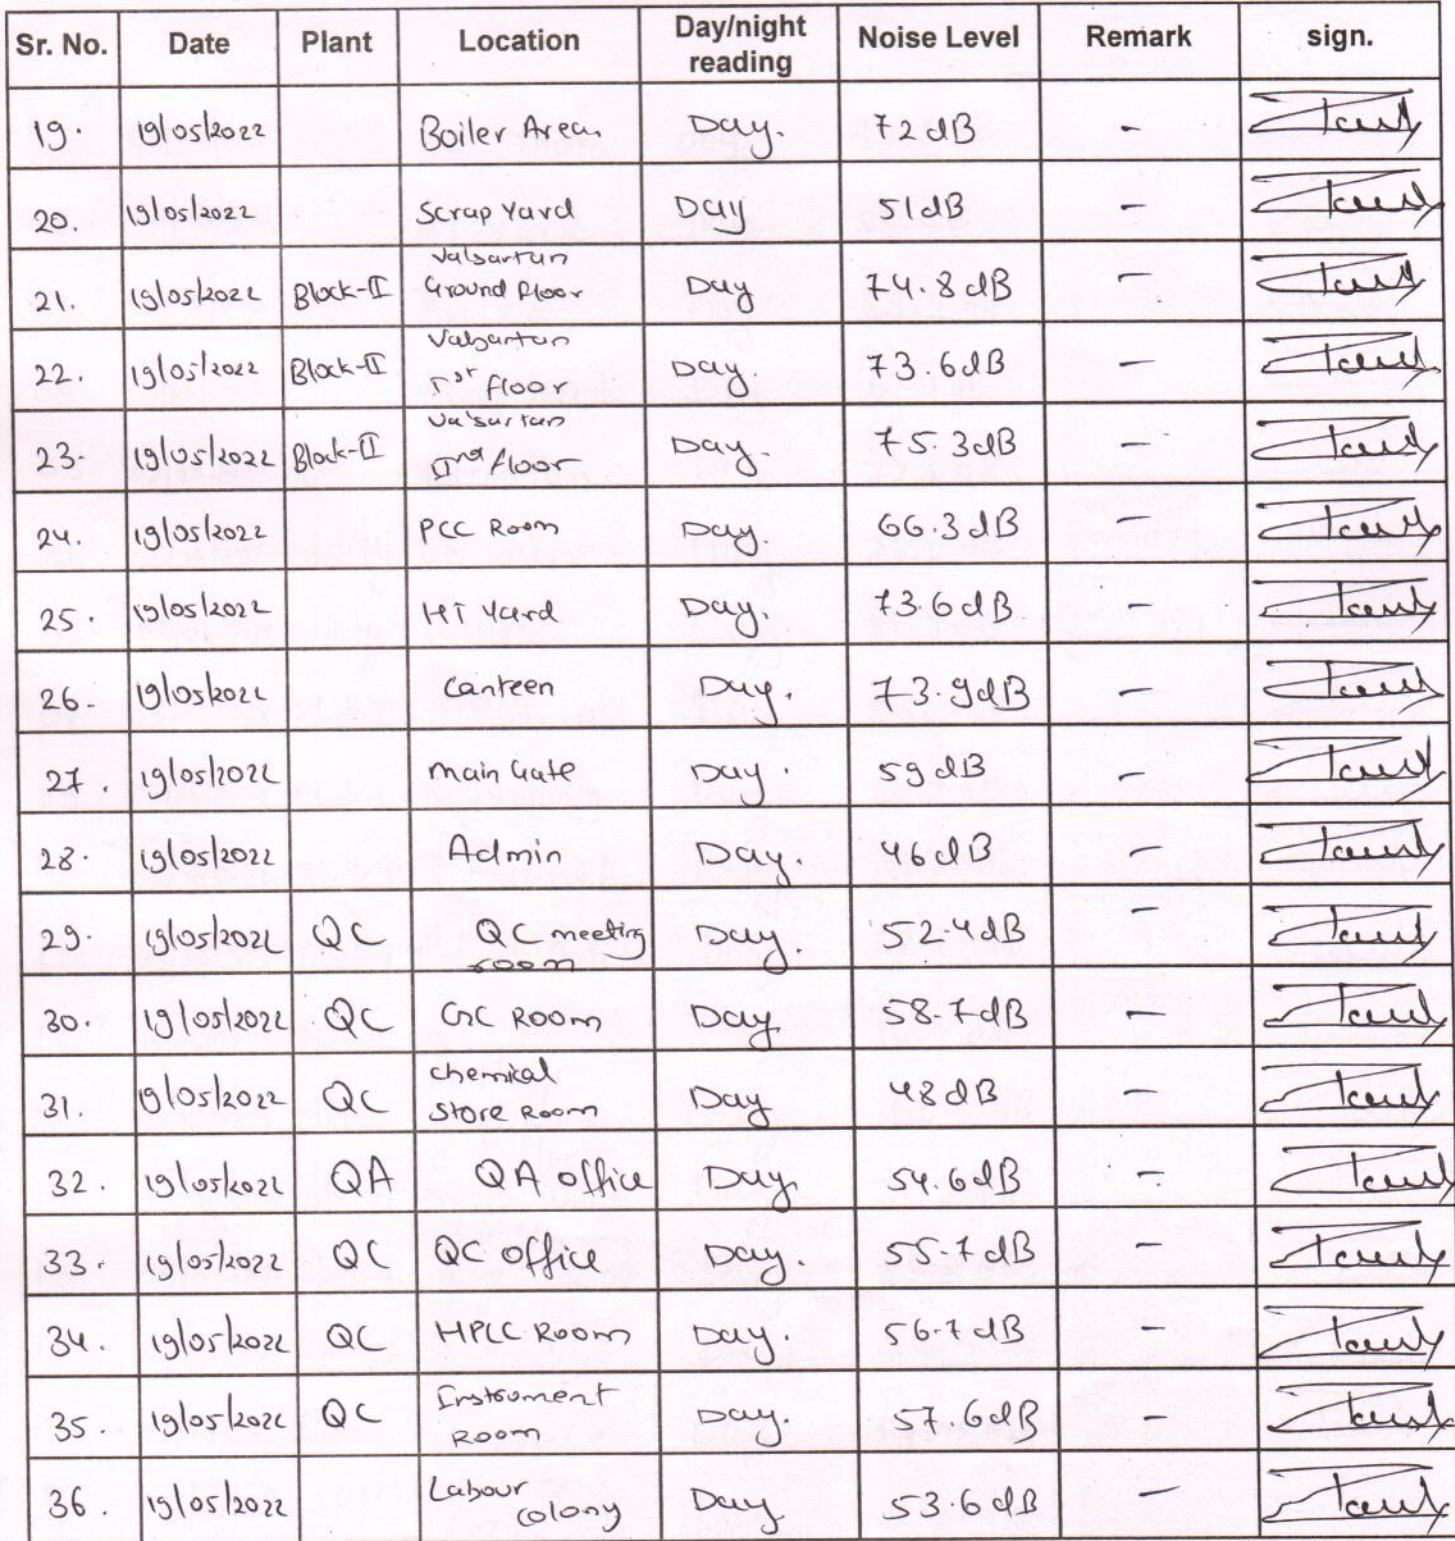 Sr. No. Date Plant Location Day/night reading Noise Level Remark sign.
19. 19/05/2022 Boiler Area Day. 72 dB -
20. 19/05/2022 Scrap Yard Day 51 dB -
21. 19/05/2022 Block-II Valsartan Ground Floor Day 74.8 dB -
22. 19/05/2022 Block-II Valsartan Ist floor Day. 73.6 dB -
23. 19/05/2022 Block-II Valsartan IInd floor Day. 75.3 dB -
24. 19/05/2022 PCC Room Day. 66.3 dB -
25. 19/05/2022 HT Yard Day. 73.6 dB -
26. 19/05/2022 Canteen Day. 73.9 dB -
27. 19/05/2022 Main Gate Day. 59 dB -
28. 19/05/2022 Admin Day. 46 dB -
29. 19/05/2022 QC QC meeting room Day. 52.4 dB -
30. 19/05/2022 QC GC Room Day 58.7 dB -
31. 19/05/2022 QC Chemical Store Room Day 48 dB -
32. 19/05/2022 QA QA office Day 54.6 dB -
33. 19/05/2022 QC QC office Day. 55.7 dB -
34. 19/05/2022 QC HPLC Room Day. 56.7 dB -
35. 19/05/2022 QC Instrument Room Day. 57.6 dB -
36. 19/05/2022 Labour colony Day 53.6 dB -